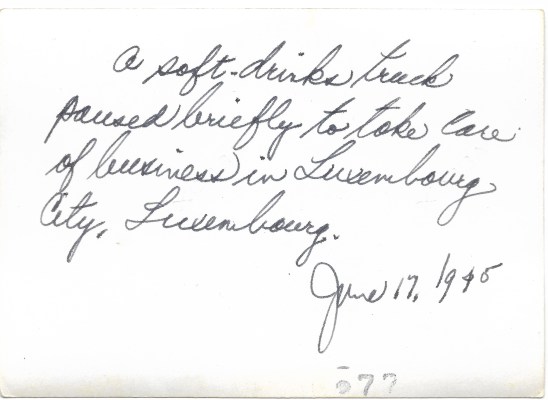 a soft-drinks truck
paused briefly to take care
of business in Luxembourg
City, Luxembourg.
June 17, 1945
577